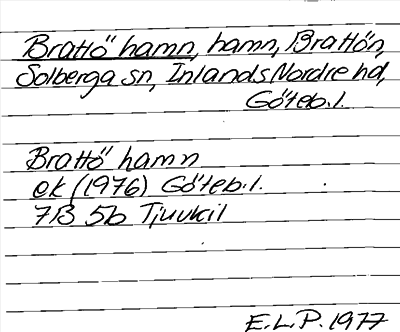 Brattö hamn, hamn, Brattön,
Solberga sn, Inlands Nordre hd,
Göteb.l.
Brattö hamn
ek (1976) Göteb.l.
7B 5b Tjuvkil
E.L.P. 1977